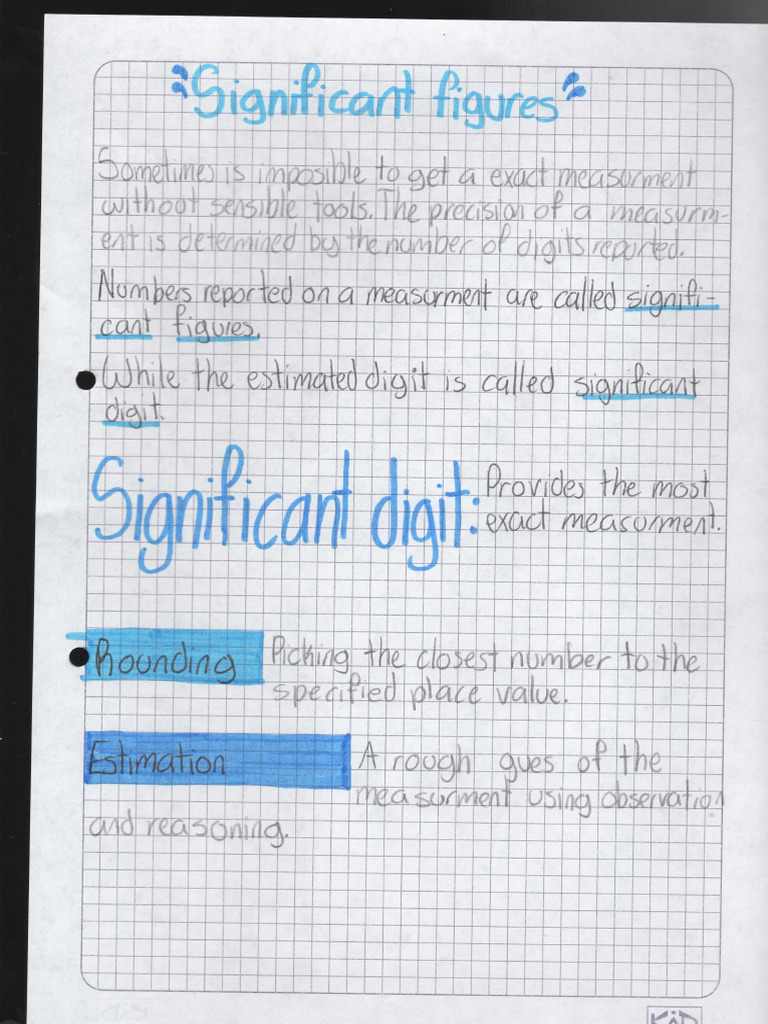 "Significant figures"
Sometimes is imposible to get a exact measurment
without sensible tools. The precision of a measurm-
ent is determined by the number of digits reported.
Numbers reported on a measurment are called signifi-
cant figures.
While the estimated digit is called significant
digit.
Significant digit: Provides the most
exact measurment.
Rounding Picking the closest number to the
specified place value.
Estimation A rough gues of the
measurment using observation
and reasoning.
KiD